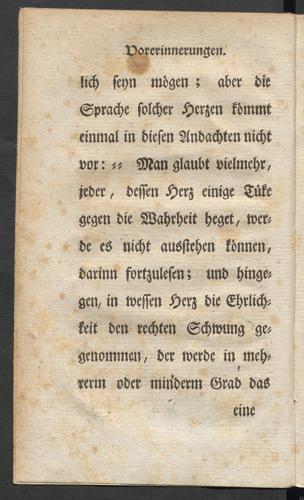 Vorerinnerungen.
lich seyn mögen; aber die
Sprache solcher Herzen kömmt
einmal in diesen Andachten nicht
vor: == Man glaubt vielmehr,
jeder, dessen Herz einige Tüke
gegen die Wahrheit heget, wer-
de es nicht ausstehen können,
darinn fortzulesen; und hinge-
gen, in wessen Herz die Ehrlich-
keit den rechten Schwung ge-
genommen, der werde in meh-
rerm oder minderm Grad das
eine